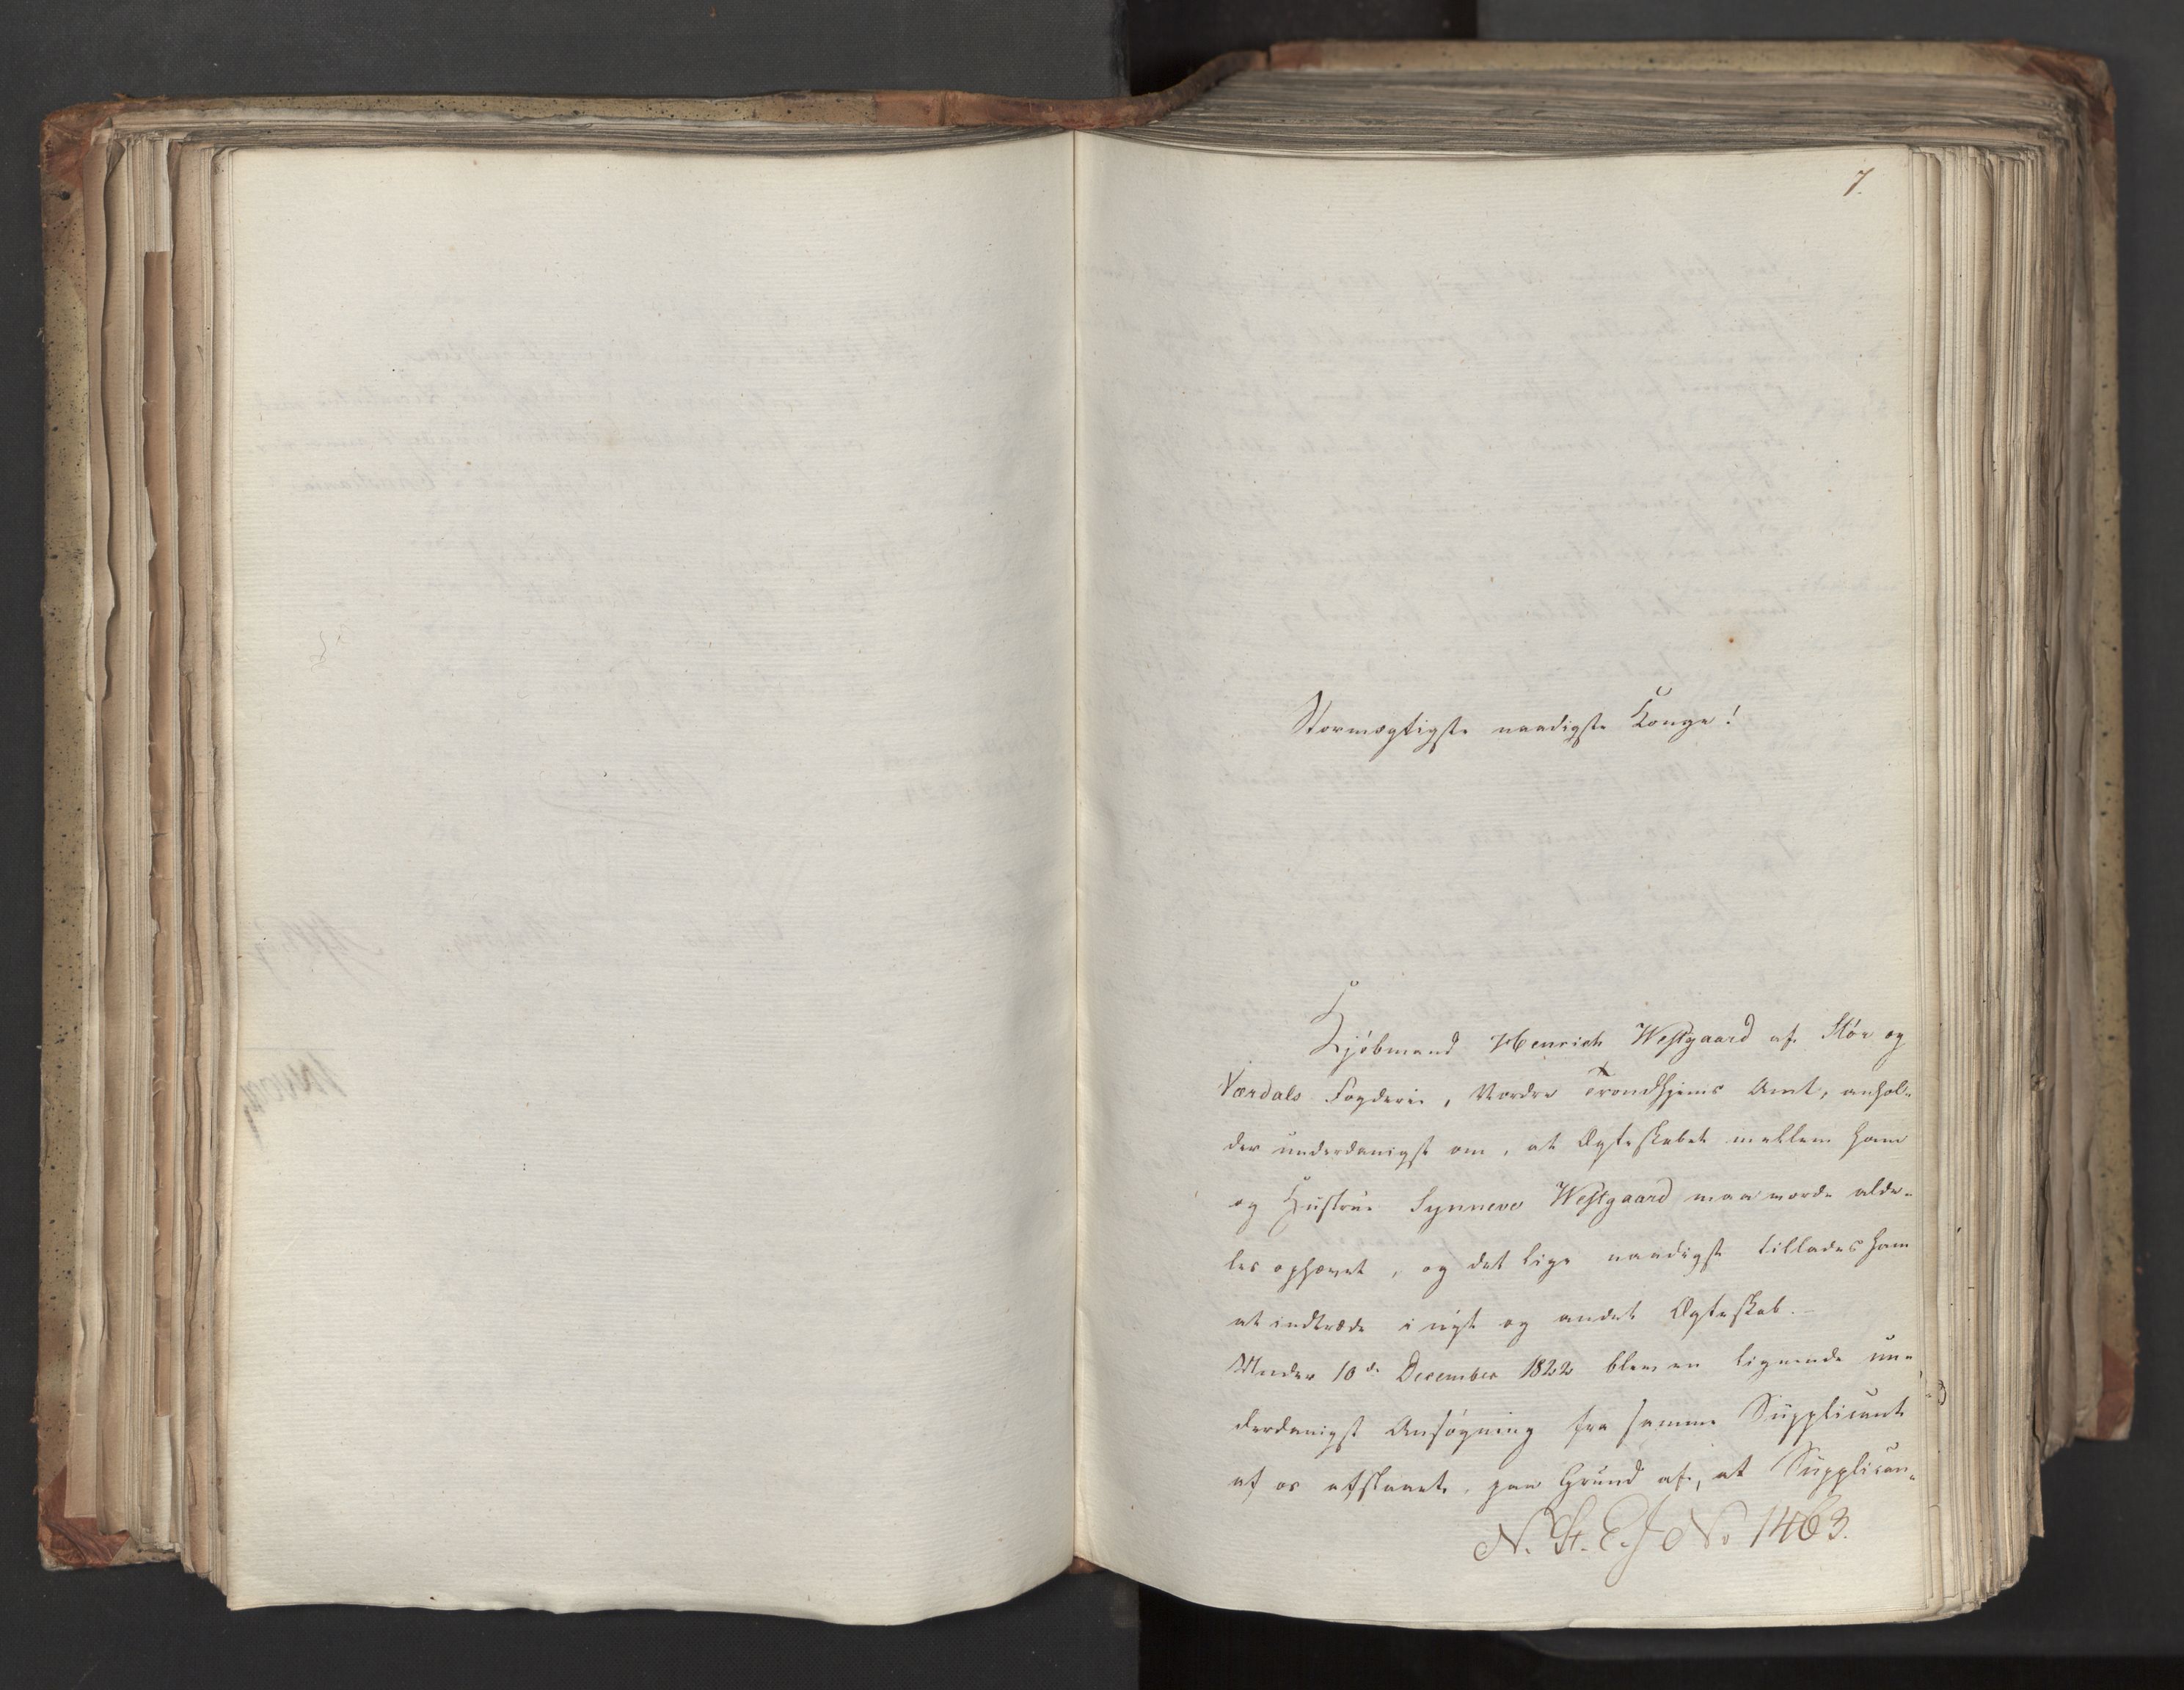 7.
Stormægtigste naadigste Konge!
Kjøbmand Henrich Westgaard af Stør og
Værdals Fogderie, Nordre Trondhjems Amt, anhol-
der underdanigst om, at Ægteskabet mellem ham
og Hustrue Synneve Westgaard maa vorde alde-
les ophævet, og det lige naadigst tillades ham
at indtræde i nyt og andet Ægteskab.
Under 10de December 1822 blev en lignende un-
derdanigst Ansøgning fra samme Supplicant
af os afslaaet, paa Grund af, at Supplican-
N. St. E. J No 1463.